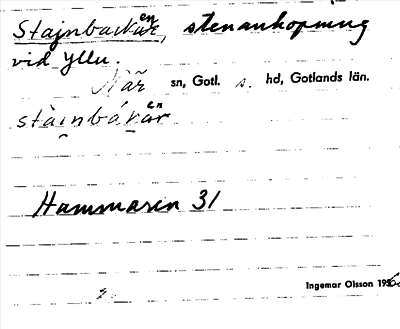 Stajnbackar, en stenanhopning
vid Yllu.
När sn, Gotl. s. hd, Gotlands län.
stàinbákar en
Hammarén 31
Ingemar Olsson 1956